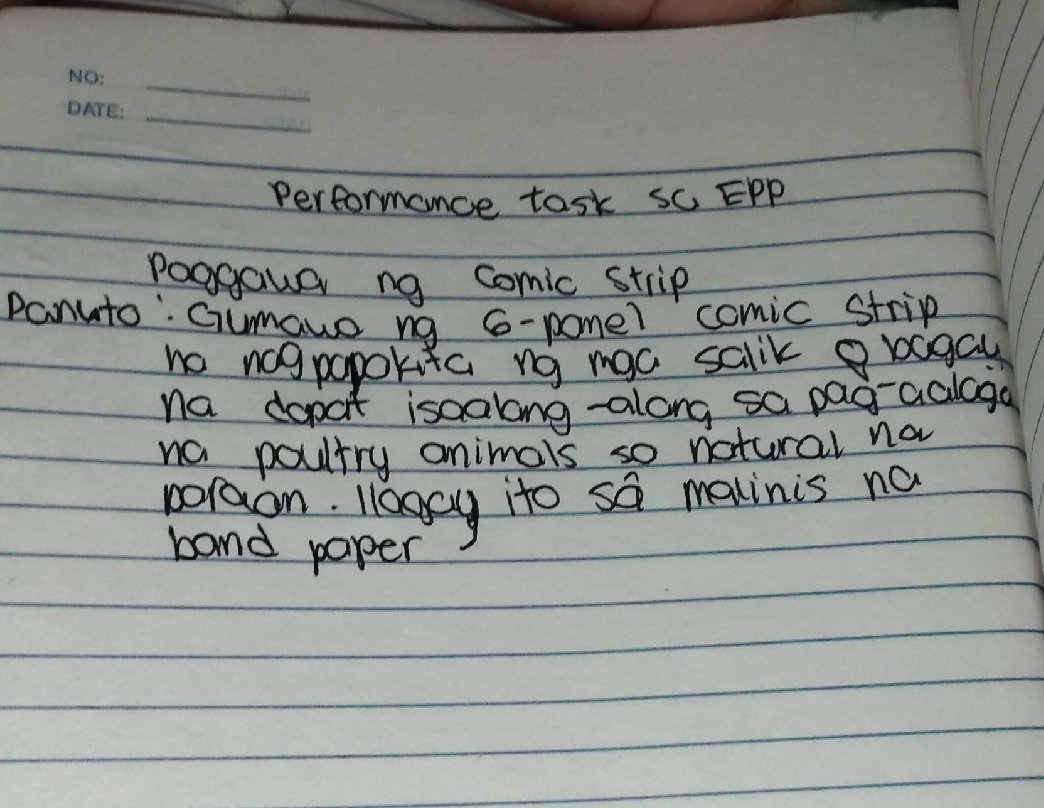 NO:
DATE:
Performance task sa EPP
Paggawa ng Comic Strip
Panuto: Gumawa ng 6-panel comic strip
na nagpapakita ng mga salik o bagay
na dapat isaalang-alang sa pag-aalaga
na poultry animals sa natural na
paraan. Ilagay ito sa malinis na
band paper